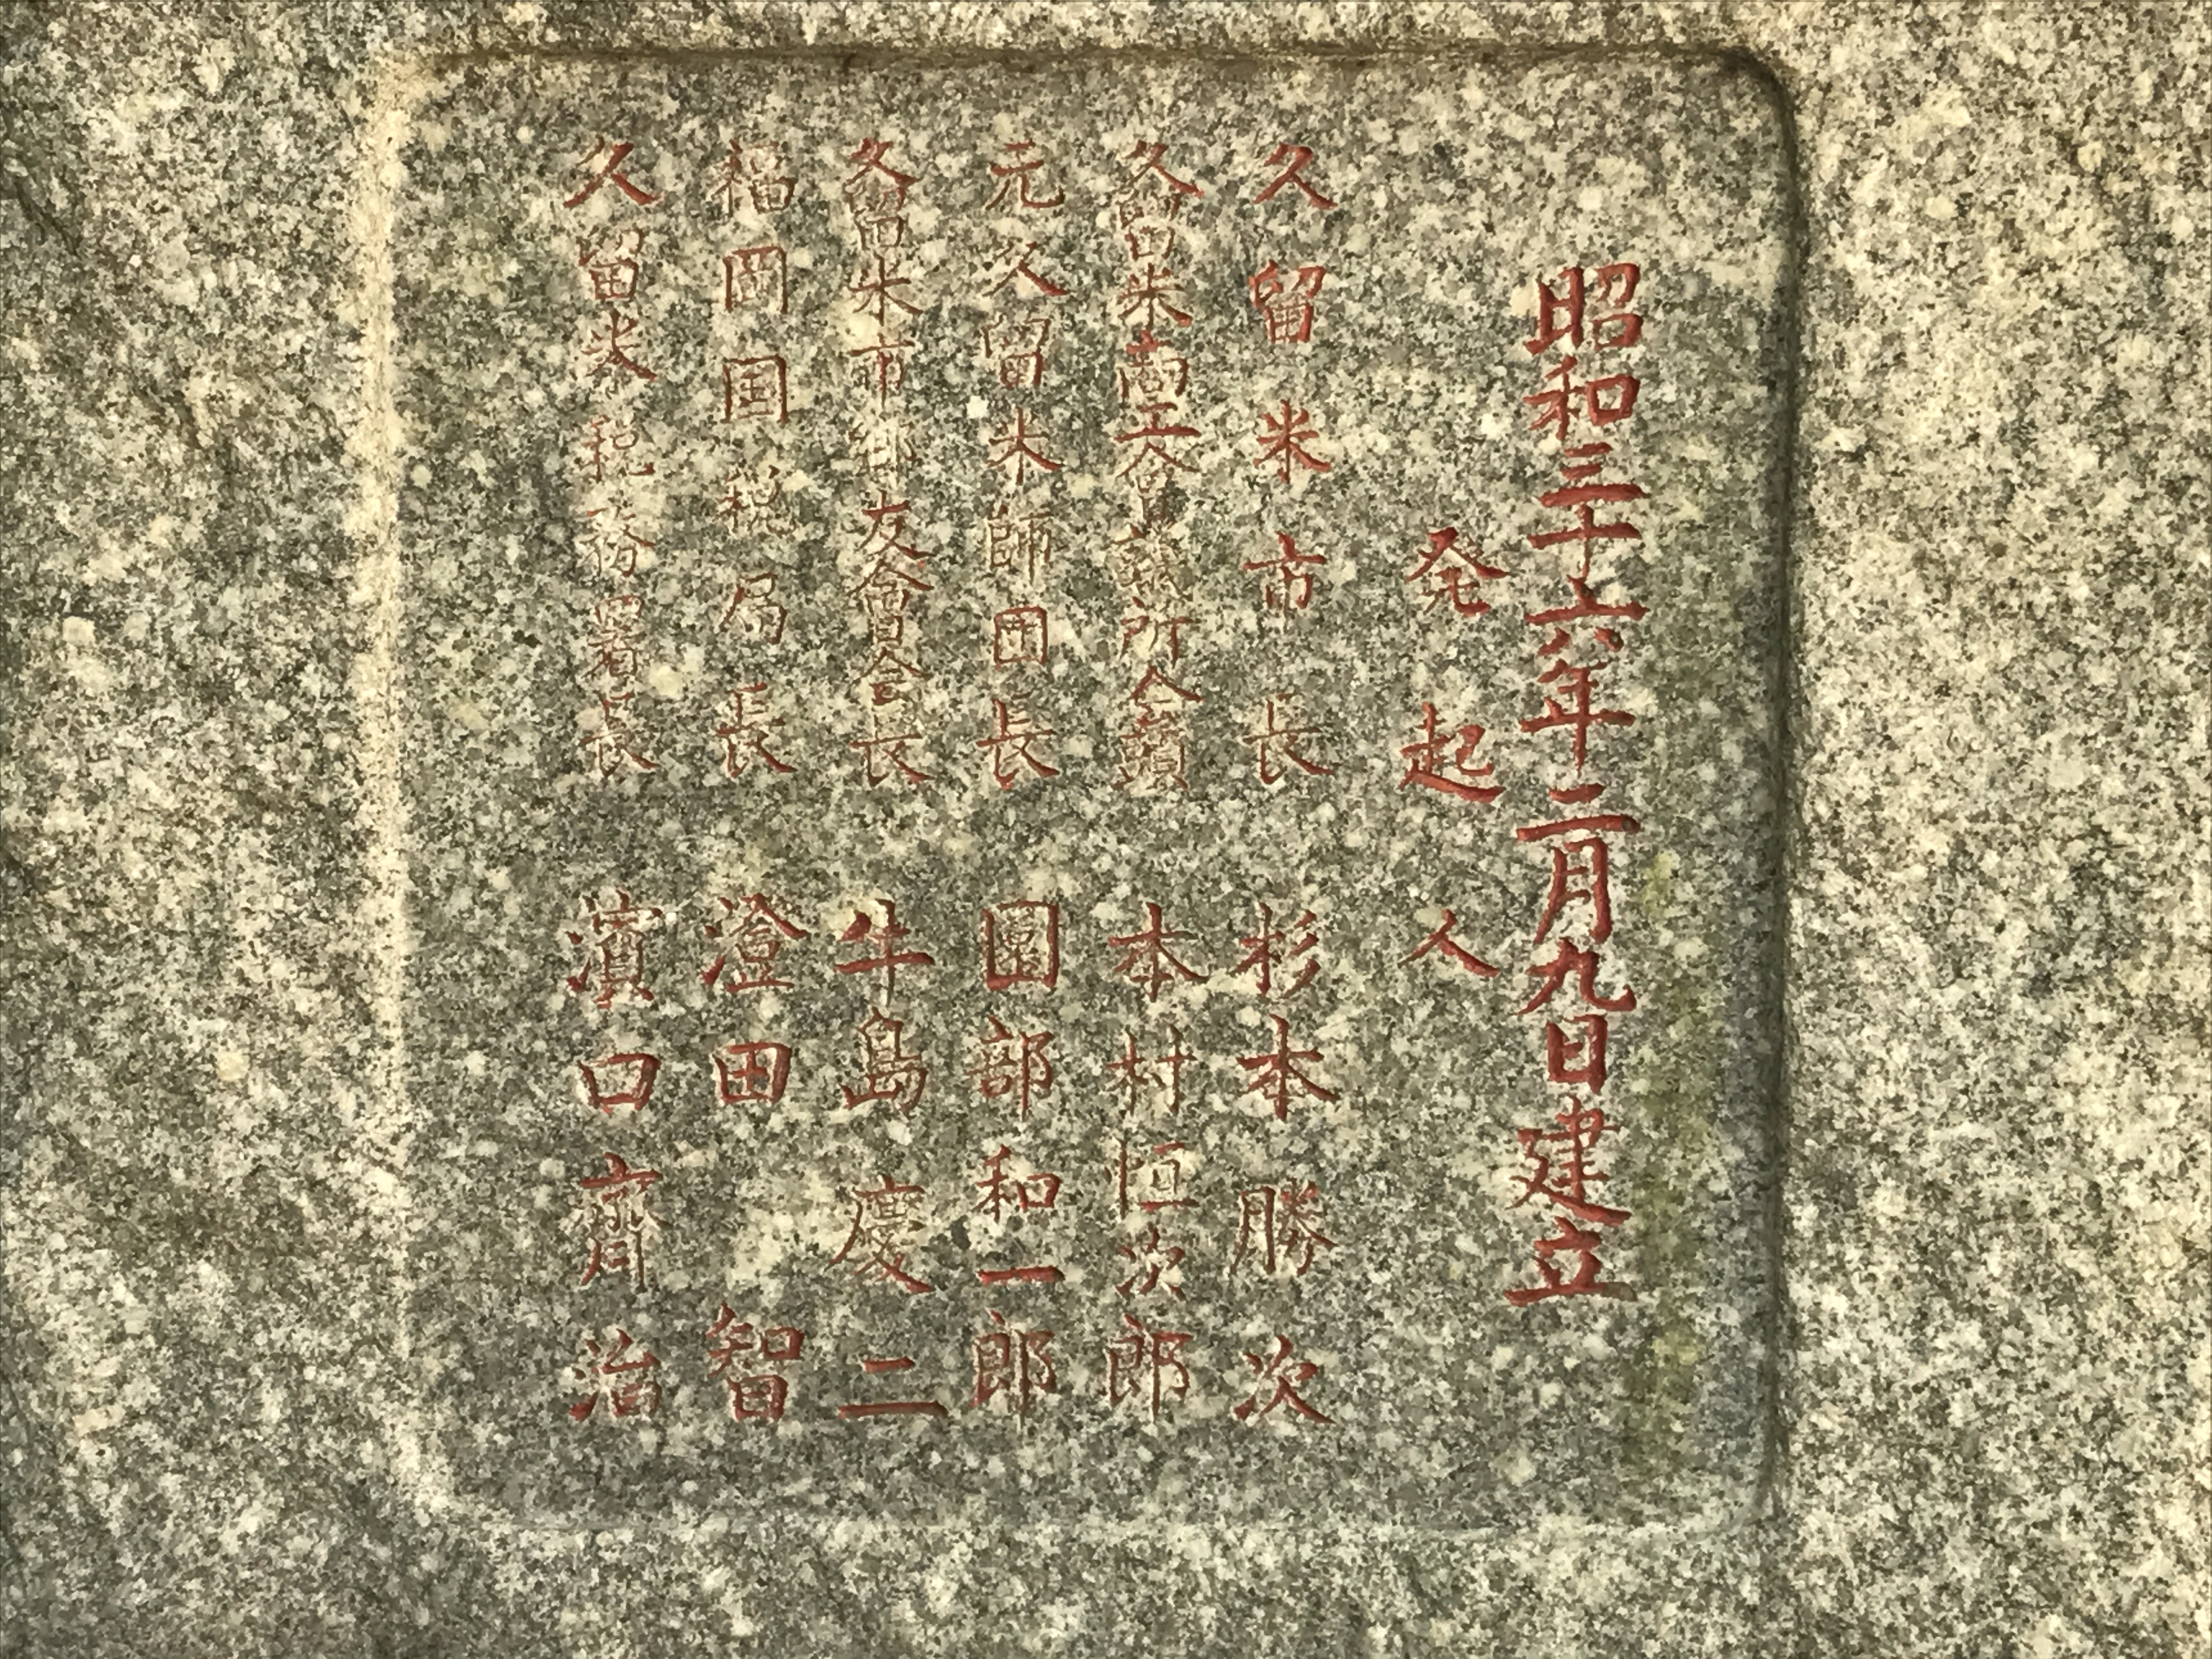 昭和三十六年二月九日建立
発起人
久留米市長 杉本勝次
久留米商工會議所会頭 本村恒次郎
元久留米師団長 園部和一郎
久留米市郷友會会長 牛島慶二
福岡国税局長 澄田智
久留米税務署長 濱口齊治